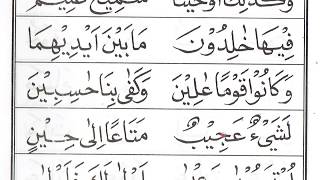 وَكَذٰلِكَ اَوْحَيْنَا سَمِيْعٌ عَلِيْمٌ
فِيْهَا خٰلِدُوْنَ مَا بَيْنَ اَيْدِيْهِمَا
وَكَانُوْا قَوْمًا عٰلِيْنَ وَكَفٰى بِنَا حٰسِبِيْنَ
لَشَيْءٌ عَجِيْبٌ مَتَاعًا اِلٰى حِيْنٍ